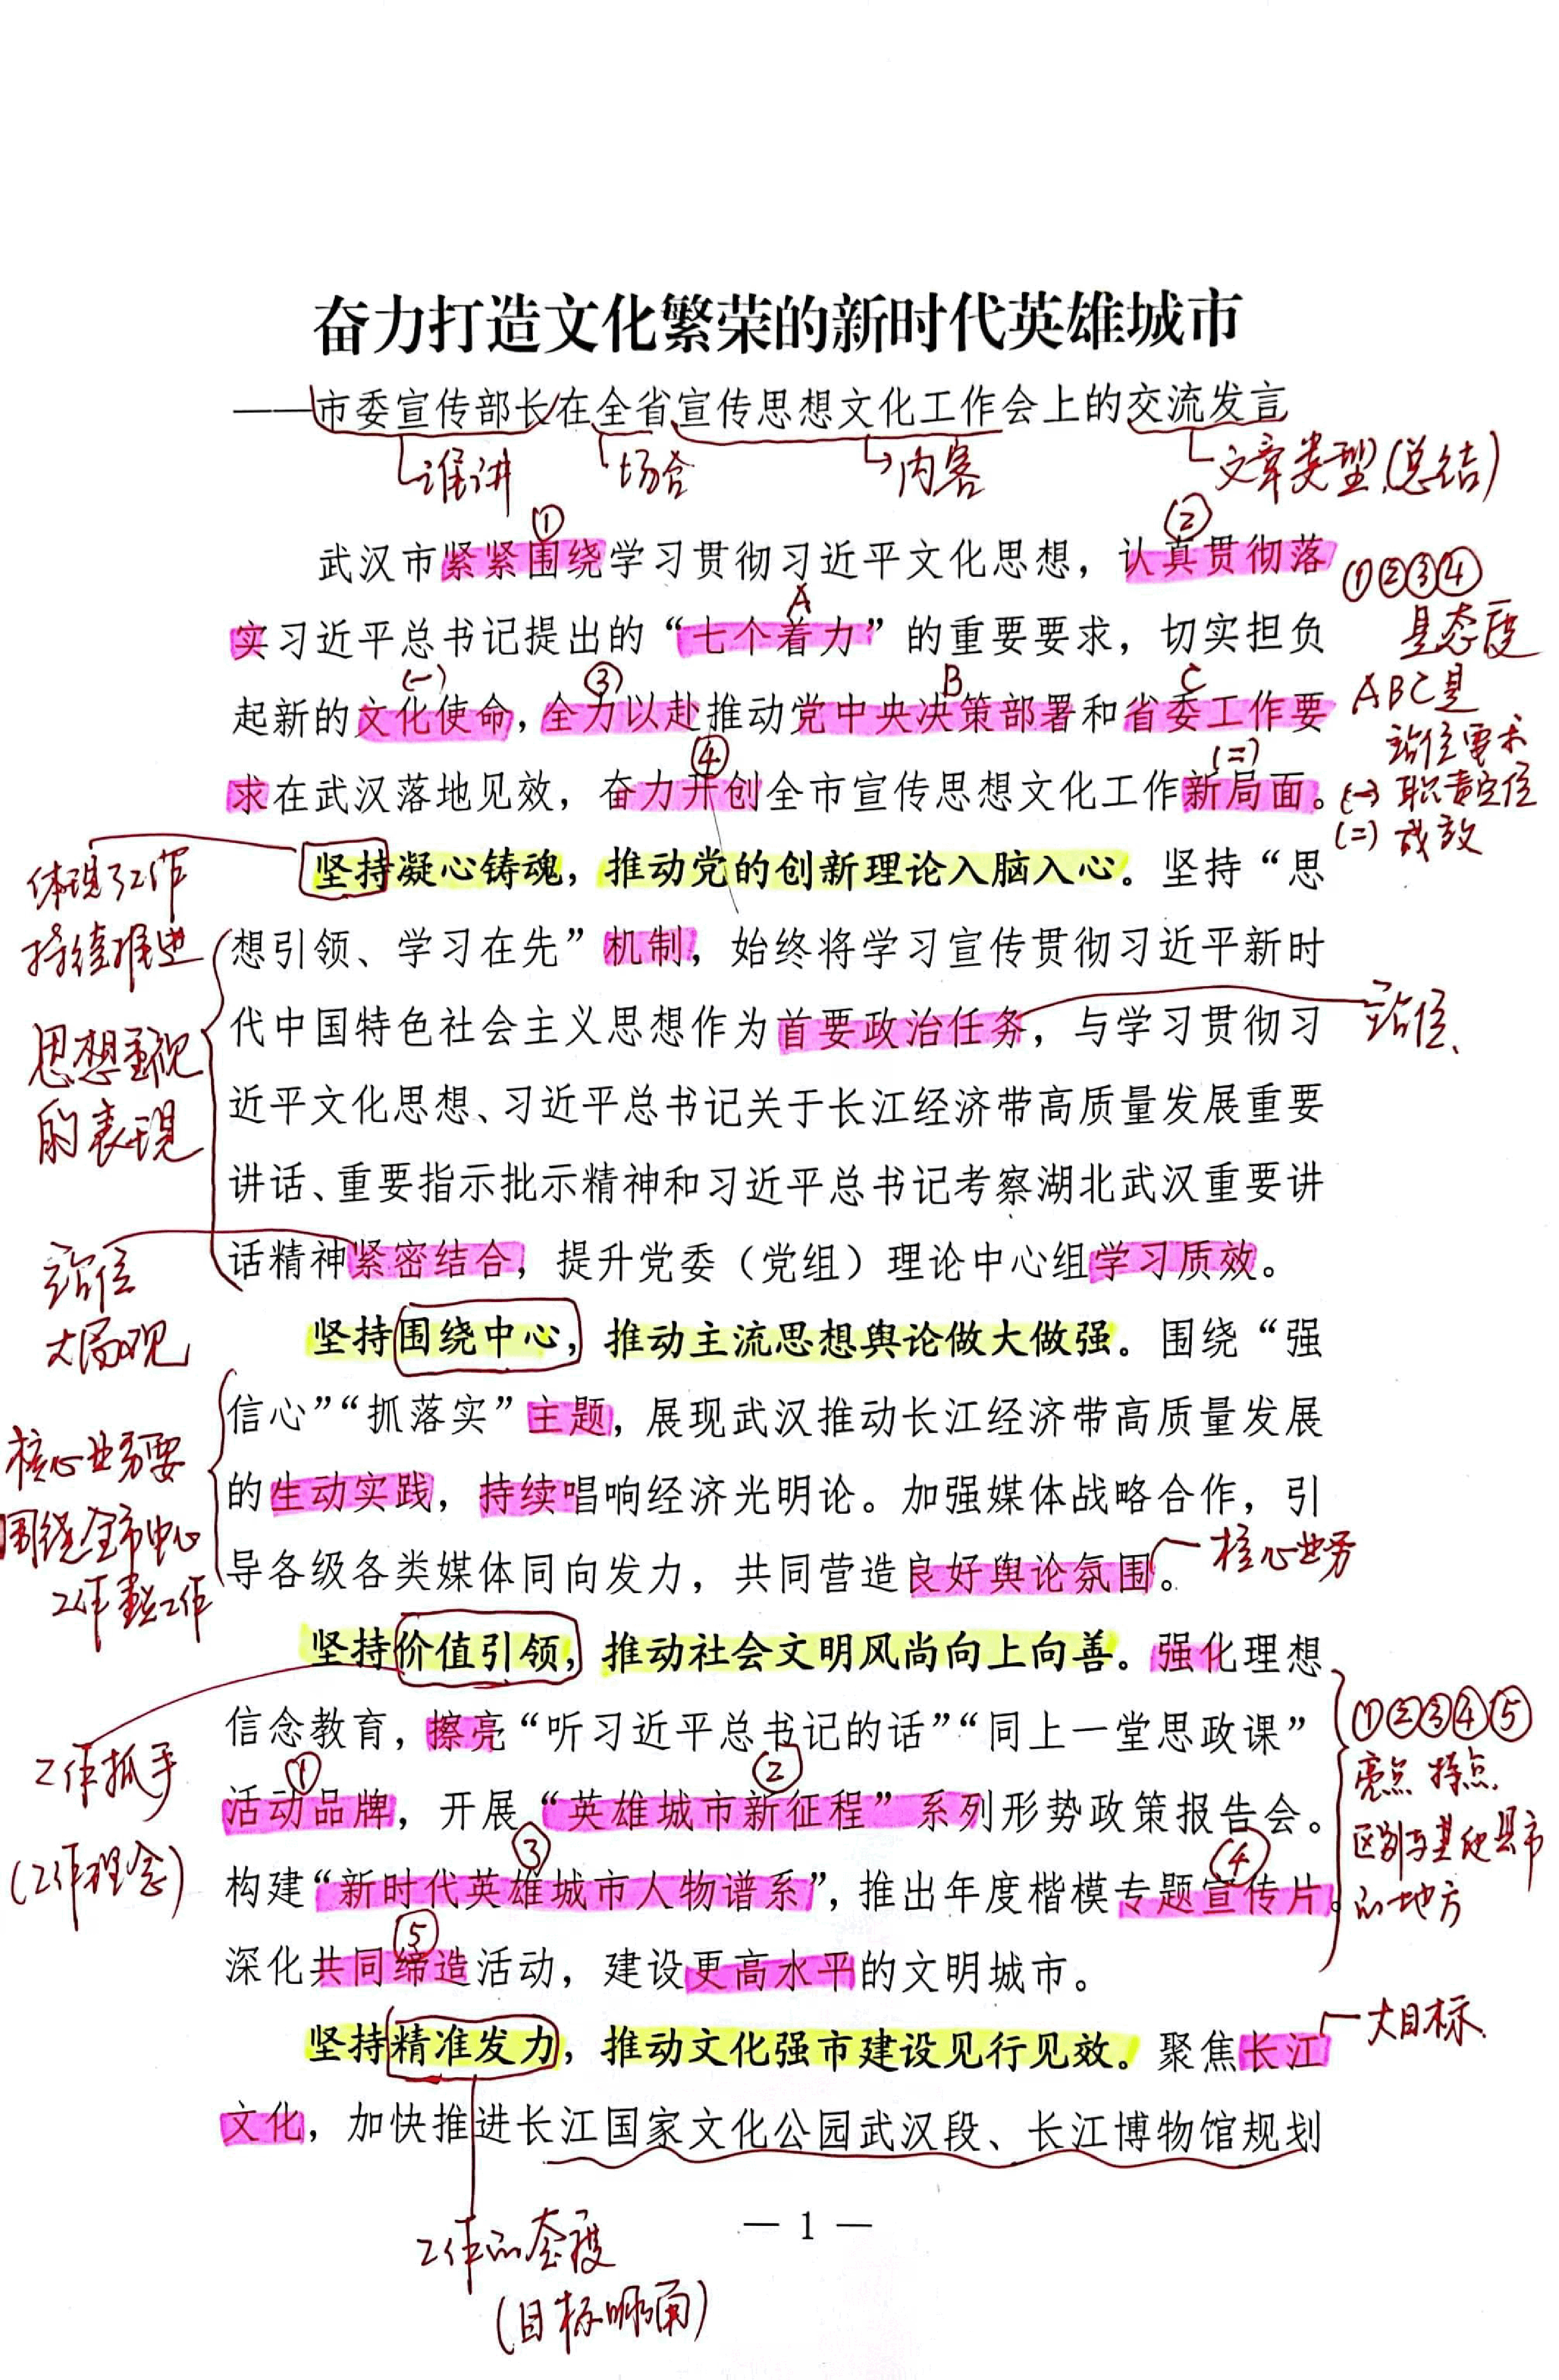 奋力打造文化繁荣的新时代英雄城市
——市委宣传部长在全省宣传思想文化工作会上的交流发言
谁讲
场合
内容
文章类型(总结)
① ②
武汉市紧紧围绕学习贯彻习近平文化思想，认真贯彻落
①②③④
是态度
A
实习近平总书记提出的“七个着力”的重要要求，切实担负
(一) ③ B C
起新的文化使命，全力以赴推动党中央决策部署和省委工作要
ABC是
站位需求
④ (二)
求在武汉落地见效，奋力开创全市宣传思想文化工作新局面。
(一) 职责定位
(二) 成效
坚持凝心铸魂，推动党的创新理论入脑入心。坚持“思
体现了工作
持续推进
想引领、学习在先”机制，始终将学习宣传贯彻习近平新时
代中国特色社会主义思想作为首要政治任务，与学习贯彻习
站位、
思想重视
的表现
近平文化思想、习近平总书记关于长江经济带高质量发展重要
讲话、重要指示批示精神和习近平总书记考察湖北武汉重要讲
话精神紧密结合，提升党委（党组）理论中心组学习质效。
站位
大局观
坚持围绕中心，推动主流思想舆论做大做强。围绕“强
信心”“抓落实”主题，展现武汉推动长江经济带高质量发展
核心业务要
围绕全市中心
工作 工作
的生动实践，持续唱响经济光明论。加强媒体战略合作，引
导各级各类媒体同向发力，共同营造良好舆论氛围。
核心业务
坚持价值引领，推动社会文明风尚向上向善。强化理想
信念教育，擦亮“听习近平总书记的话”“同上一堂思政课”
工作抓手
(工作理念)
① ②
活动品牌，开展“英雄城市新征程”系列形势政策报告会。
①②③④⑤
亮点 特点.
区别与其他县市
的地方
③ ④
构建“新时代英雄城市人物谱系”，推出年度楷模专题宣传片。
⑤
深化共同缔造活动，建设更高水平的文明城市。
坚持精准发力，推动文化强市建设见行见效。聚焦长江
大目标.
文化，加快推进长江国家文化公园武汉段、长江博物馆规划
— 1 —
工作的态度
(目标明确)